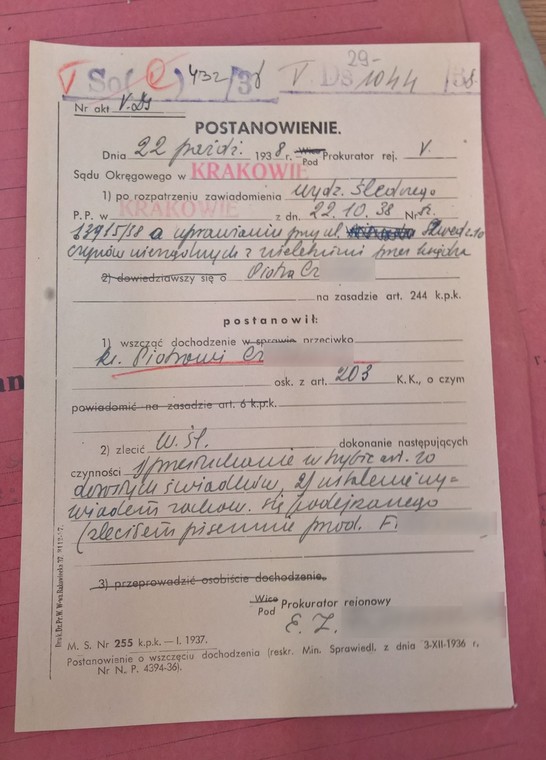 V Sof 432/38 V. Ds 29- 1044/38.
Nr akt V. Ds
POSTANOWIENIE.
Dnia 22 paźdz. 1938 r. Wice Pod Prokurator rej. V.
Sądu Okręgowego w KRAKOWIE
1) po rozpatrzeniu zawiadomienia wydz. śledczego
P. P. w KRAKOWIE z dn. 22.10.38 Nr
13915/38 o uprawianiu przy ul.
czynów nierządnych z nieletnimi przez księdza
2) dowiedziawszy się o Piotra Cz
na zasadzie art. 244 k.p.k.
postanowił:
1) wszcząć dochodzenie w sprawie przeciwko
ks. Piotrowi Cz
osk. z art. 203 K.K., o czym
powiadomić na zasadzie art. 6 k.p.k.
2) zlecić W. Śl. dokonanie następujących
czynności 1) przesłuchanie w trybie art. 20
dorosłych świadków, 2) ustalenie wy-
wiadem zachow. się podejrzanego
(zleciłem pisemnie przod. F.
3) przeprowadzić osobiście dochodzenie.
Wice Pod Prokurator rejonowy
E. Z.
M. S. Nr 255 k.p.k. — I. 1937.
Postanowienie o wszczęciu dochodzenia (reskr. Min. Sprawiedl. z dnia 3-XII-1936 r.
Nr N. P. 4394-36).